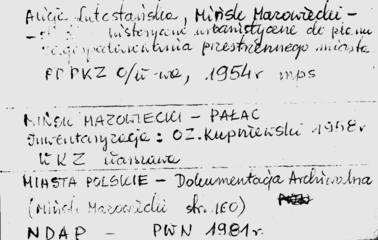 Alicja Lutostańska, Mińsk Mazowiecki -
historyczno urbanistyczne do planu
zagospodarowania przestrzennego miasta
PP PKZ O/W-wa, 1954r mps
MIŃSK MAZOWIECKI - PAŁAC
Inwentaryzacja: OZ. Kupniewski 1958r
WKZ Warszawa
MIASTA POLSKIE - Dokumentacja Archiwalna
(Mińsk Mazowiecki str. 160)
NDAP - PWN 1981r.